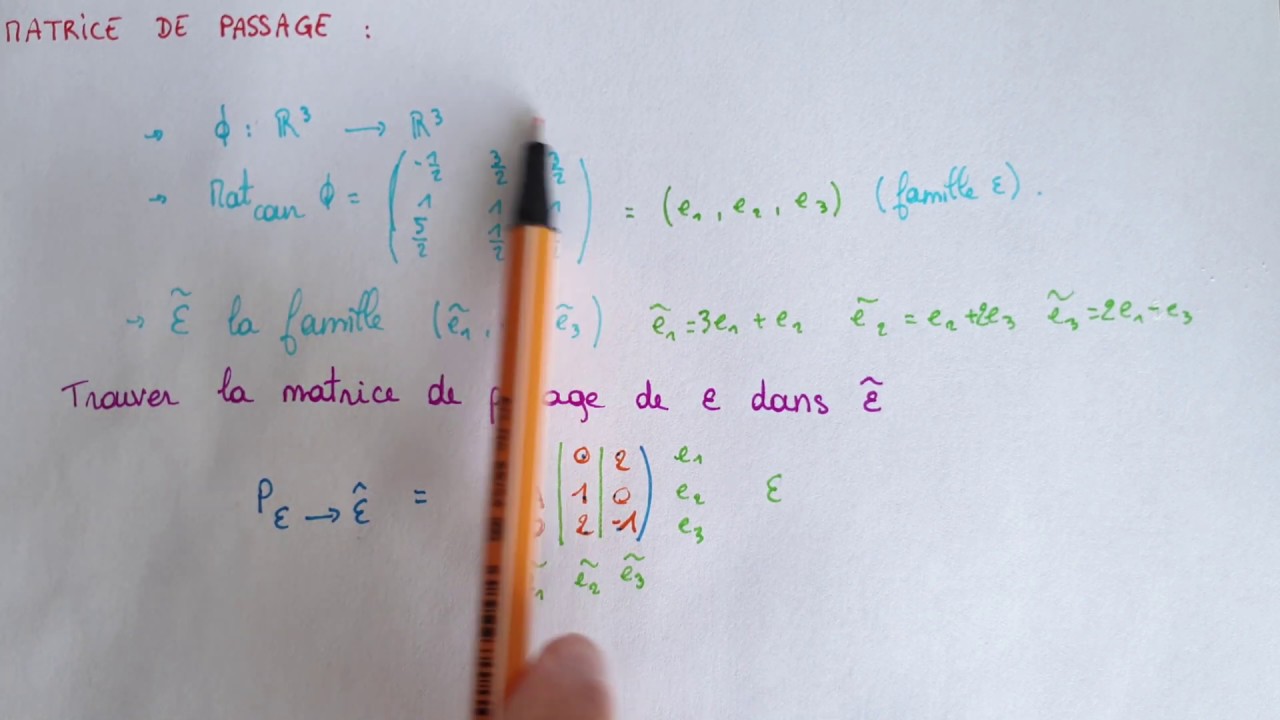 MATRICE DE PASSAGE :
→ ϕ : ℝ³ → ℝ³
→ Mat can ϕ = ( -1/2 3/2 3/2 ; 1 1 1 ; 5/2 1/2 ) = (e₁, e₂, e₃) (famille ε).
→ ε̃ la famille (ẽ₁, ẽ₃) ẽ₁ = 3e₁ + e₂ ẽ₂ = e₂ + 2e₃ ẽ₃ = 2e₁ - e₃
Trouver la matrice de de ε dans ε̃
P ε → ε̂ =
0 2 e₁
1 0 e₂ ε
2 -1 e₃
ẽ₂ ẽ₃